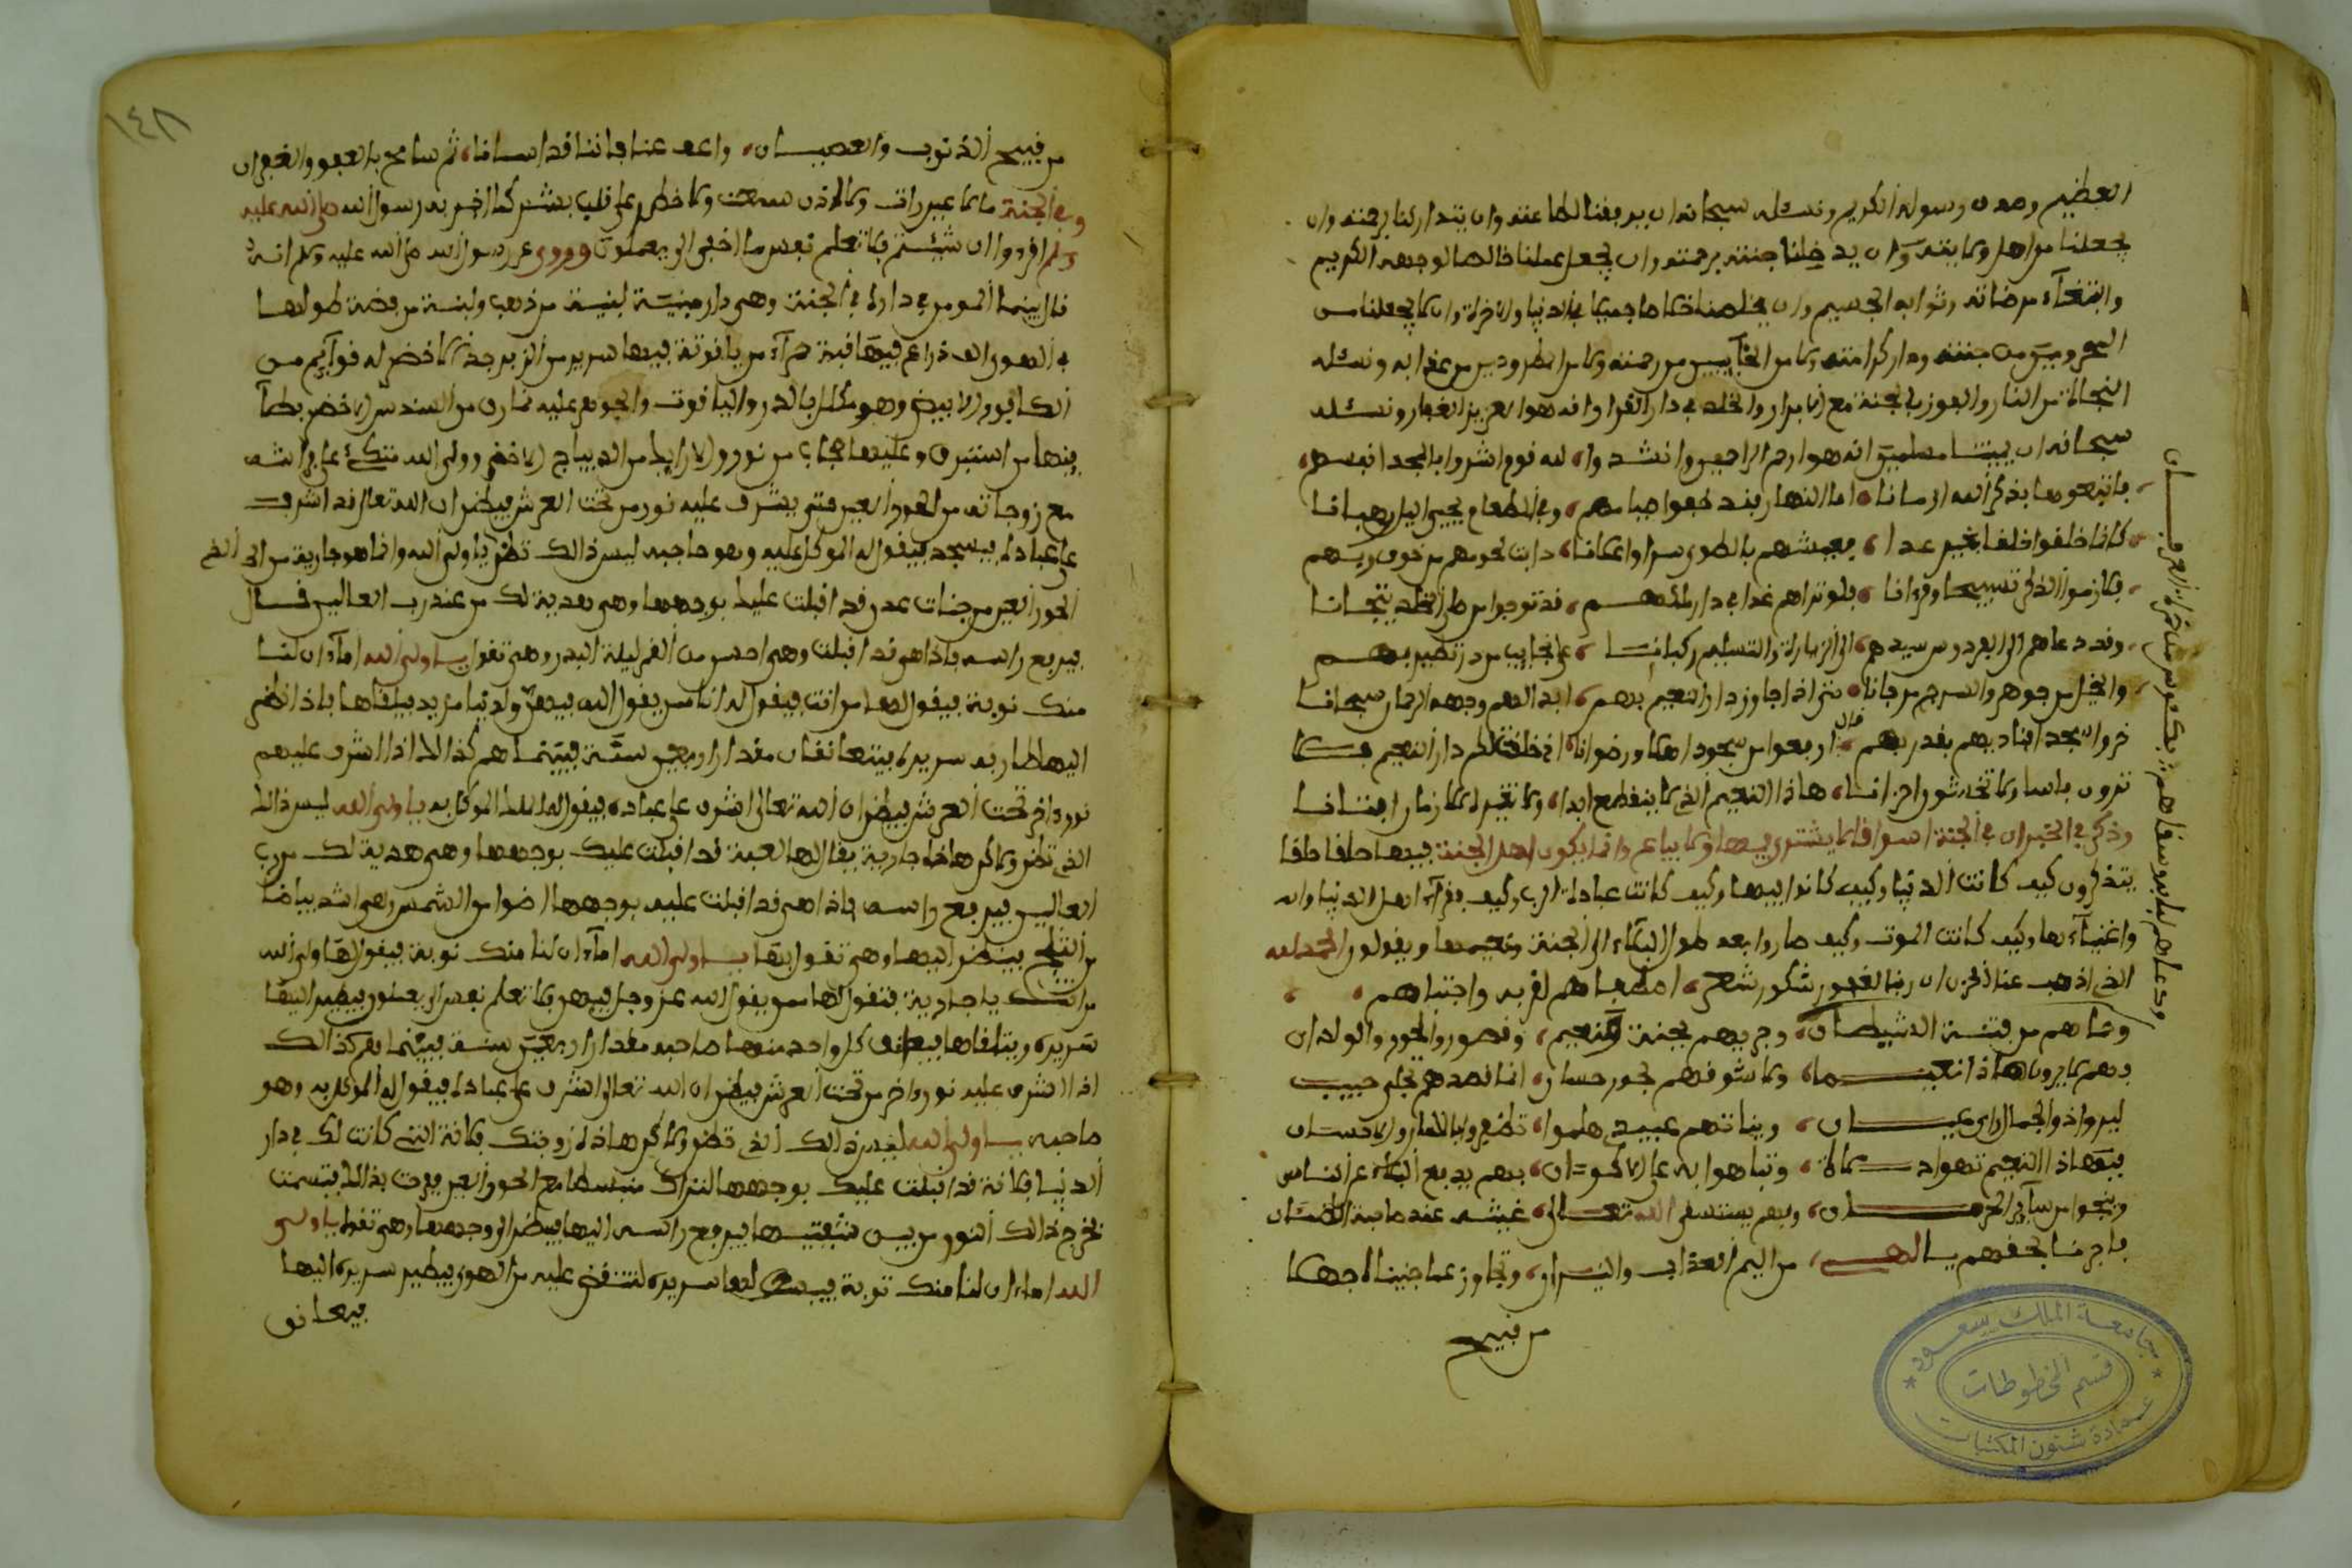 العظيم وصدق رسوله الكريم ونسئله سبحانه ان يوفقنا لطاعته وان يتداركنا برحمته وان
يجعلنا من اهل ولايته وان يدخلنا جنته برحمته وان يجعل عملنا خالصا لوجهه الكريم
وابتغاء مرضاته وثوابه الجسيم وان يخلصنا خلاصا جميلا في الدنيا والاخرة وان لا يجعلنا من
المحرومين من جنته ودار كرامته ولا من الخآيبين من رحمته ولا من المطرودين من عذابه ونسئله
النجاة من النار والفوز بالجنة مع الابرار والخلد في دار القرار انه هو العزيز الغفار ونسئله
سبحانه ان يميتنا مسلمين انه هو ارحم الراحمين وانشدوا لله قوم اشروا بالمجد انفسهم
فاتبعوها بذكر الله ازمانا اما النهار فقد صيامهم وفي الظلام يحيي اليل رهبانا
كانا خلقوا خلفا بخير عدا بالطوى سرا واعلانا ذابت لحومهم من خوف ربهم
فلازموا الذكر تسبيحا وقرءانا فلو تراهم غدا في دار ملكهم قد توجوا من حلي الخلد تيجانا
وقد دعاهم الى الفردوس سيدهم الى الزيارة والتسليم ركبانا على نجايب من در تطير بهم
والخيل من جوهر والسرج مرجانا حتى اذا جاوز دار النعيم بهم ابدا لهم وجهه الرحمان سبحانا
خروا سجدا فناديهم بقدر بهم قال ارفعوا من سجود اهلا ورضوانا اني خلقت لكم دار النعيم فلا
ترون باسا ولا تخشوا احزانا هاذا النعيم الذي لا ينقطع ابدا ولا تغيره الازمان افنانا
وذكر في الخبر ان في الجنة اسواقا لا يشترى فيها ولا يباع وانما يكون اهل الجنة فيها حلقا حلقا
يتذاكرون كيف كانت الدنيا وكيف كانوا فيها وكيف كانت عبادة الرب وكيف فقرآء اهل الدنيا وان
واغنيآءها وكيف كانت الموت وكيف صاروا بعد طول البكاء الى الجنة ونعيمها ويقولون الحمد لله
الذي اذهب عنا الحزن ان ربنا لغفور شكور شعر اصطفاهم لقربه واجتباهم
وحماهم من فتنة الشيطان وجريهم بجنة ونعيم وقصور والحور والولدان
وهم لا يرون هاذا نعيما ولا شوقهم لحور حسان انما قصدهم تجلي حبيب
ليروا ذو الجمال راى عيان ويناتهم عبيدي هلموا تظفروا بالامان والاحسان
فبهاذا النعيم تهواد وتباهوا به على الاكوان بهم يدفع البلاء عن الناس
وينجوا من سآير الحرمان وبهم يستسقى الله تعالى غيثه عند
فاجرنا بحقهم يا الهي من اليم العذاب والنيران وتجاوز عما جنيناه جهلا
من قبيح
ودعاهم لباب وسقاهم بكئوس من شراب العرفان
١٤٨
من قبيح الذنوب والعصيان واعف عنا فاننا قد اسانا ثم سامح بالعفو والغفران
وفي الجنة ما لا عين رات ولا اذن سمعت ولا خطر على قلب بشر كما اخبر به رسول الله صلى الله عليه
وسلم اقرءوا ان شيئتم فلا تعلم نفس ما اخفي الى يعملون وروي عن رسول الله صلى الله عليه وسلم انه
قال بينما المومن في داره في الجنة وهي دار مبنية لبنة من ذهب ولبنة من فضة طولها
في الهوى الف ذراع فيها قبة حمرآء من ياقوتة فيها سرير من الزبرجد الاخضر له قوآيم من
الكافور الابيض وهو مكلل بالدر والياقوت والجوهر عليه نمارق من السندس الاخضر بطآ
ينها من استبرق وعليها حجاب من نور ورلا ارايط من الديباج الاخضر وولي الله متكئ على فراشه
مع زوجاته من الحور العين حتى يشرف عليه نور من تحت العرش فيظن ان الله تعالى قد اشرف
على عباده فيسجد فيقول له الموكل عليه وهو حاجبه ليس ذالك تظن يا ولي الله وانما هو جارية من
الحور العين من جنات عدن قد اقبلت عليك بوجهها وهي هدية لك من عند رب العالمين قال
فيرفع راسه فاذا هي قد اقبلت وهي احسن من القمر ليلة البدر وهي تقول يا ولي الله امآ ان لنا
منك نوبة فيقول لها من انت فيقول له انا ممن يقول الله فيهن ولدينا مزيد فيلقاها فاذا نظر
اليها طار به سريره فيتعانقان مقدار اربعين سنة فبينما هم كذالك اذا اشرف عليهم
نور اخر تحت العرش فيظن ان الله تعالى اشرف على عباده فيقول له الملك الموكل به يا ولي الله ليس ذالك
الذي تظن ولاكن هاذه جارية يقال لها لعبة قد اقبلت عليك بوجهها وهي هدية لك من رب
العالمين فيرفع راسه فاذا هي قد اقبلت عليه بوجهها اضوا من الشمس وهي اشد بياضا
من الثلج فينظر اليها وهي تقول يا ولي الله امآ ان لنا منك نوبة فيقول لها ولي الله
من انت يا جارية فتقول له انا ممن يقول الله عز وجل فيهن فلا تعلم نفس الى يعملون فيطير اليها
سريره ويتلقاها فيعانق كل واحد منهما صاحبه مقدار اربعين سنة فبينما هم كذالك
اذا اشرف عليه نور اخر من تحت العرش فيظن ان الله تعالى اشرف على عباده فيقول له الموكل به وهو
حاجبه يا ولي الله ليس ذالك الذي تظن ولاكن هاذه زوجتك فلانة التي كانت لك في دار
الدنيا فلانة قد اقبلت عليك بوجهها لتراك مع الحور العين فرحت بذالك فتبسمت
فخرج ذالك النور من بين شفتيها فيرفع راسه اليها فينظر الى وجهها وهي تقول يا ولي
الله اماءان لنا منك نوبة لها سريره لتنقض عليه من الهوى فيطير سريره اليها
فيعانق
جامعة الملك سعود
قسم المخطوطات
عمادة شئون المكتبات